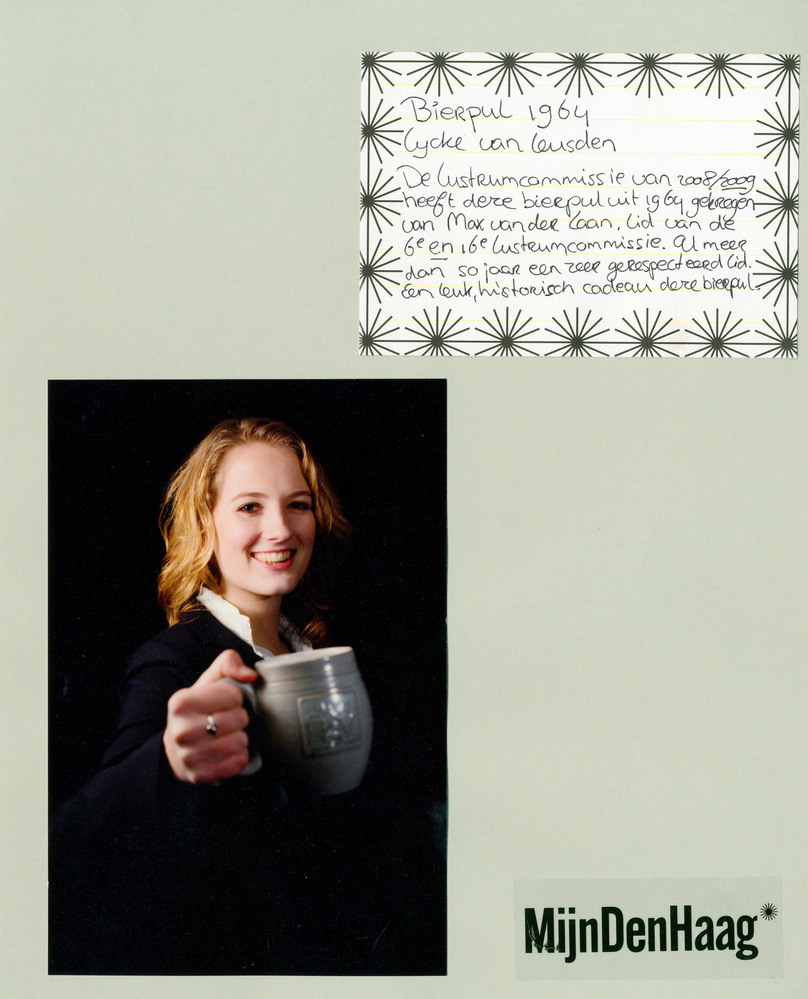 Bierpul 1964
Lycke van Leusden
De Lustrumcommissie van 2008/2009
heeft deze bierpul uit 1964 gekregen
van Max van der Laan, lid van de
6e en 16e Lustrumcommissie. Al meer
dan 50 jaar een zeer gerespecteerd lid.
Een leuk, historisch cadeau deze bierpul.
MijnDenHaag*